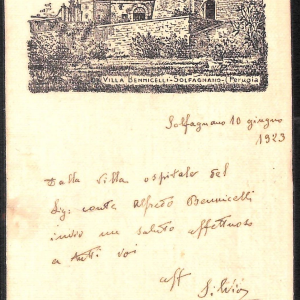 VILLA BENNICELLI - SOLFAGNANO - (Perugia)
Solfagnano 10 giugno
1923
Dalla villa ospitale del
Sig. conte Alfredo Bennicelli
invio un saluto affettuoso
a tutti voi
aff
Silvio